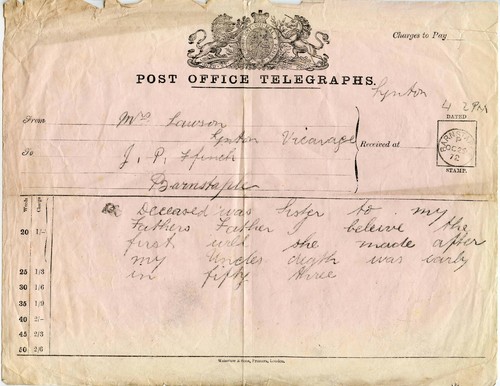 Charges to Pay
POST OFFICE TELEGRAPHS.
Lynton
4 2 PM
DATED
From
Mrs Lawson
Lynton Vicarage
Received at
BARNSTAPLE
OC
72
STAMP.
To
J. P. Ffinch
Barnstaple
Words
Charge
Deceased was sister to my
20 Fathers Father I beleive the
first will she made after
my uncles death was early
25 1/3 in fifty three
30 1/6
35 1/9
40 2/-
45 2/3
50 2/6
Waterlow & Sons, Printers, London.